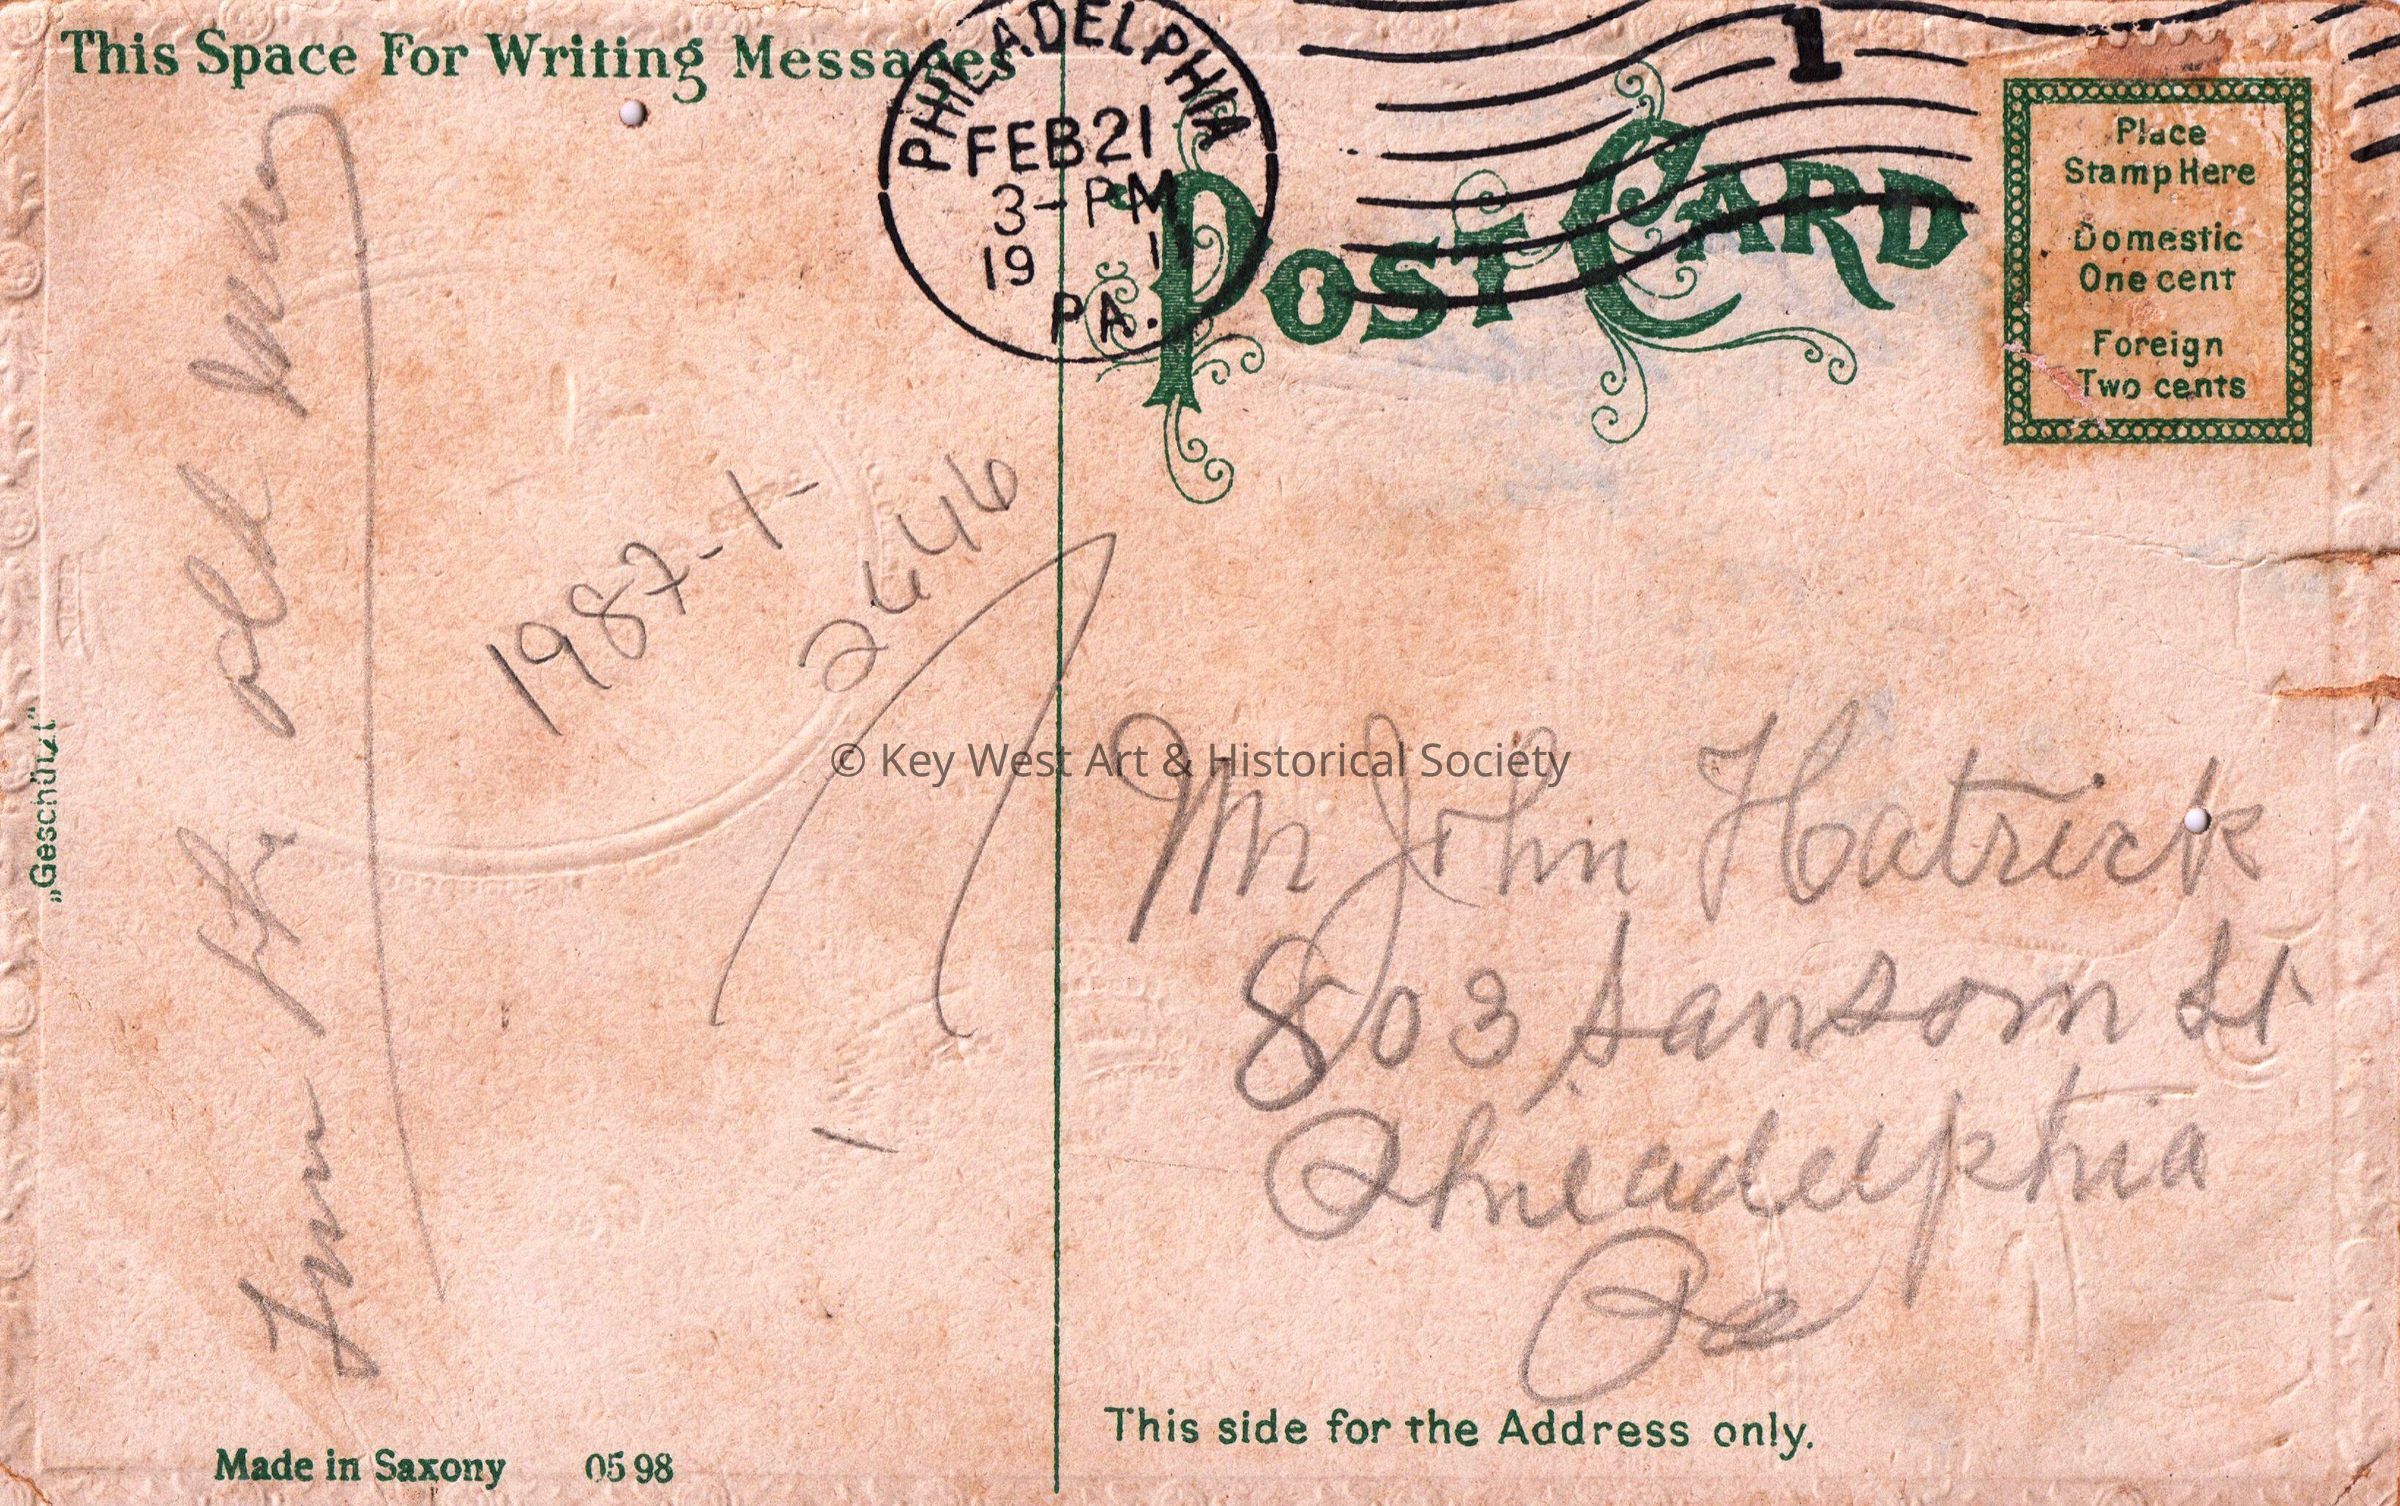 This Space For Writing Messages
PHILADELPHIA
FEB 21
3-PM
19 11
PA.
1
POST CARD
Place
Stamp Here
Domestic
One cent
Foreign
Two cents
From the old man
1987-1-
2446
© Key West Art & Historical Society
Mr John Hatrick
803 Sansom St
Phileadelphia
Pa
„Geschützt“
This side for the Address only.
Made in Saxony 05 98